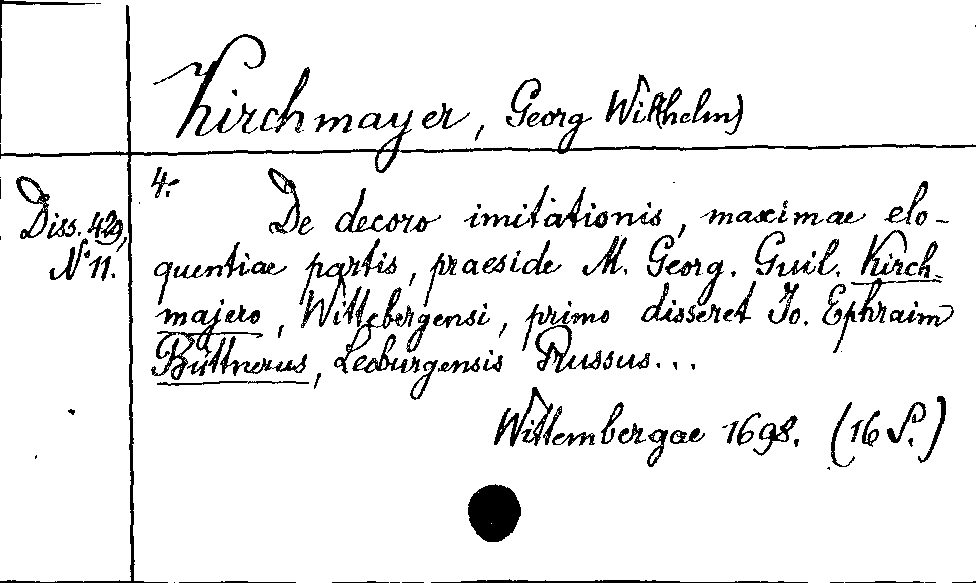 Kirchmayer, Georg Wil(helm)
Diss. 429,
N° 11.
4:
De decoro imitationis, maximae elo-
quentiae partis, praeside M. Georg. Guil. Kirch-
majero, Wittebergensi, primo disseret Jo. Ephraim
Büttnerus, Leoburgensis Prussus...
Wittembergae 1698. (16 S.)